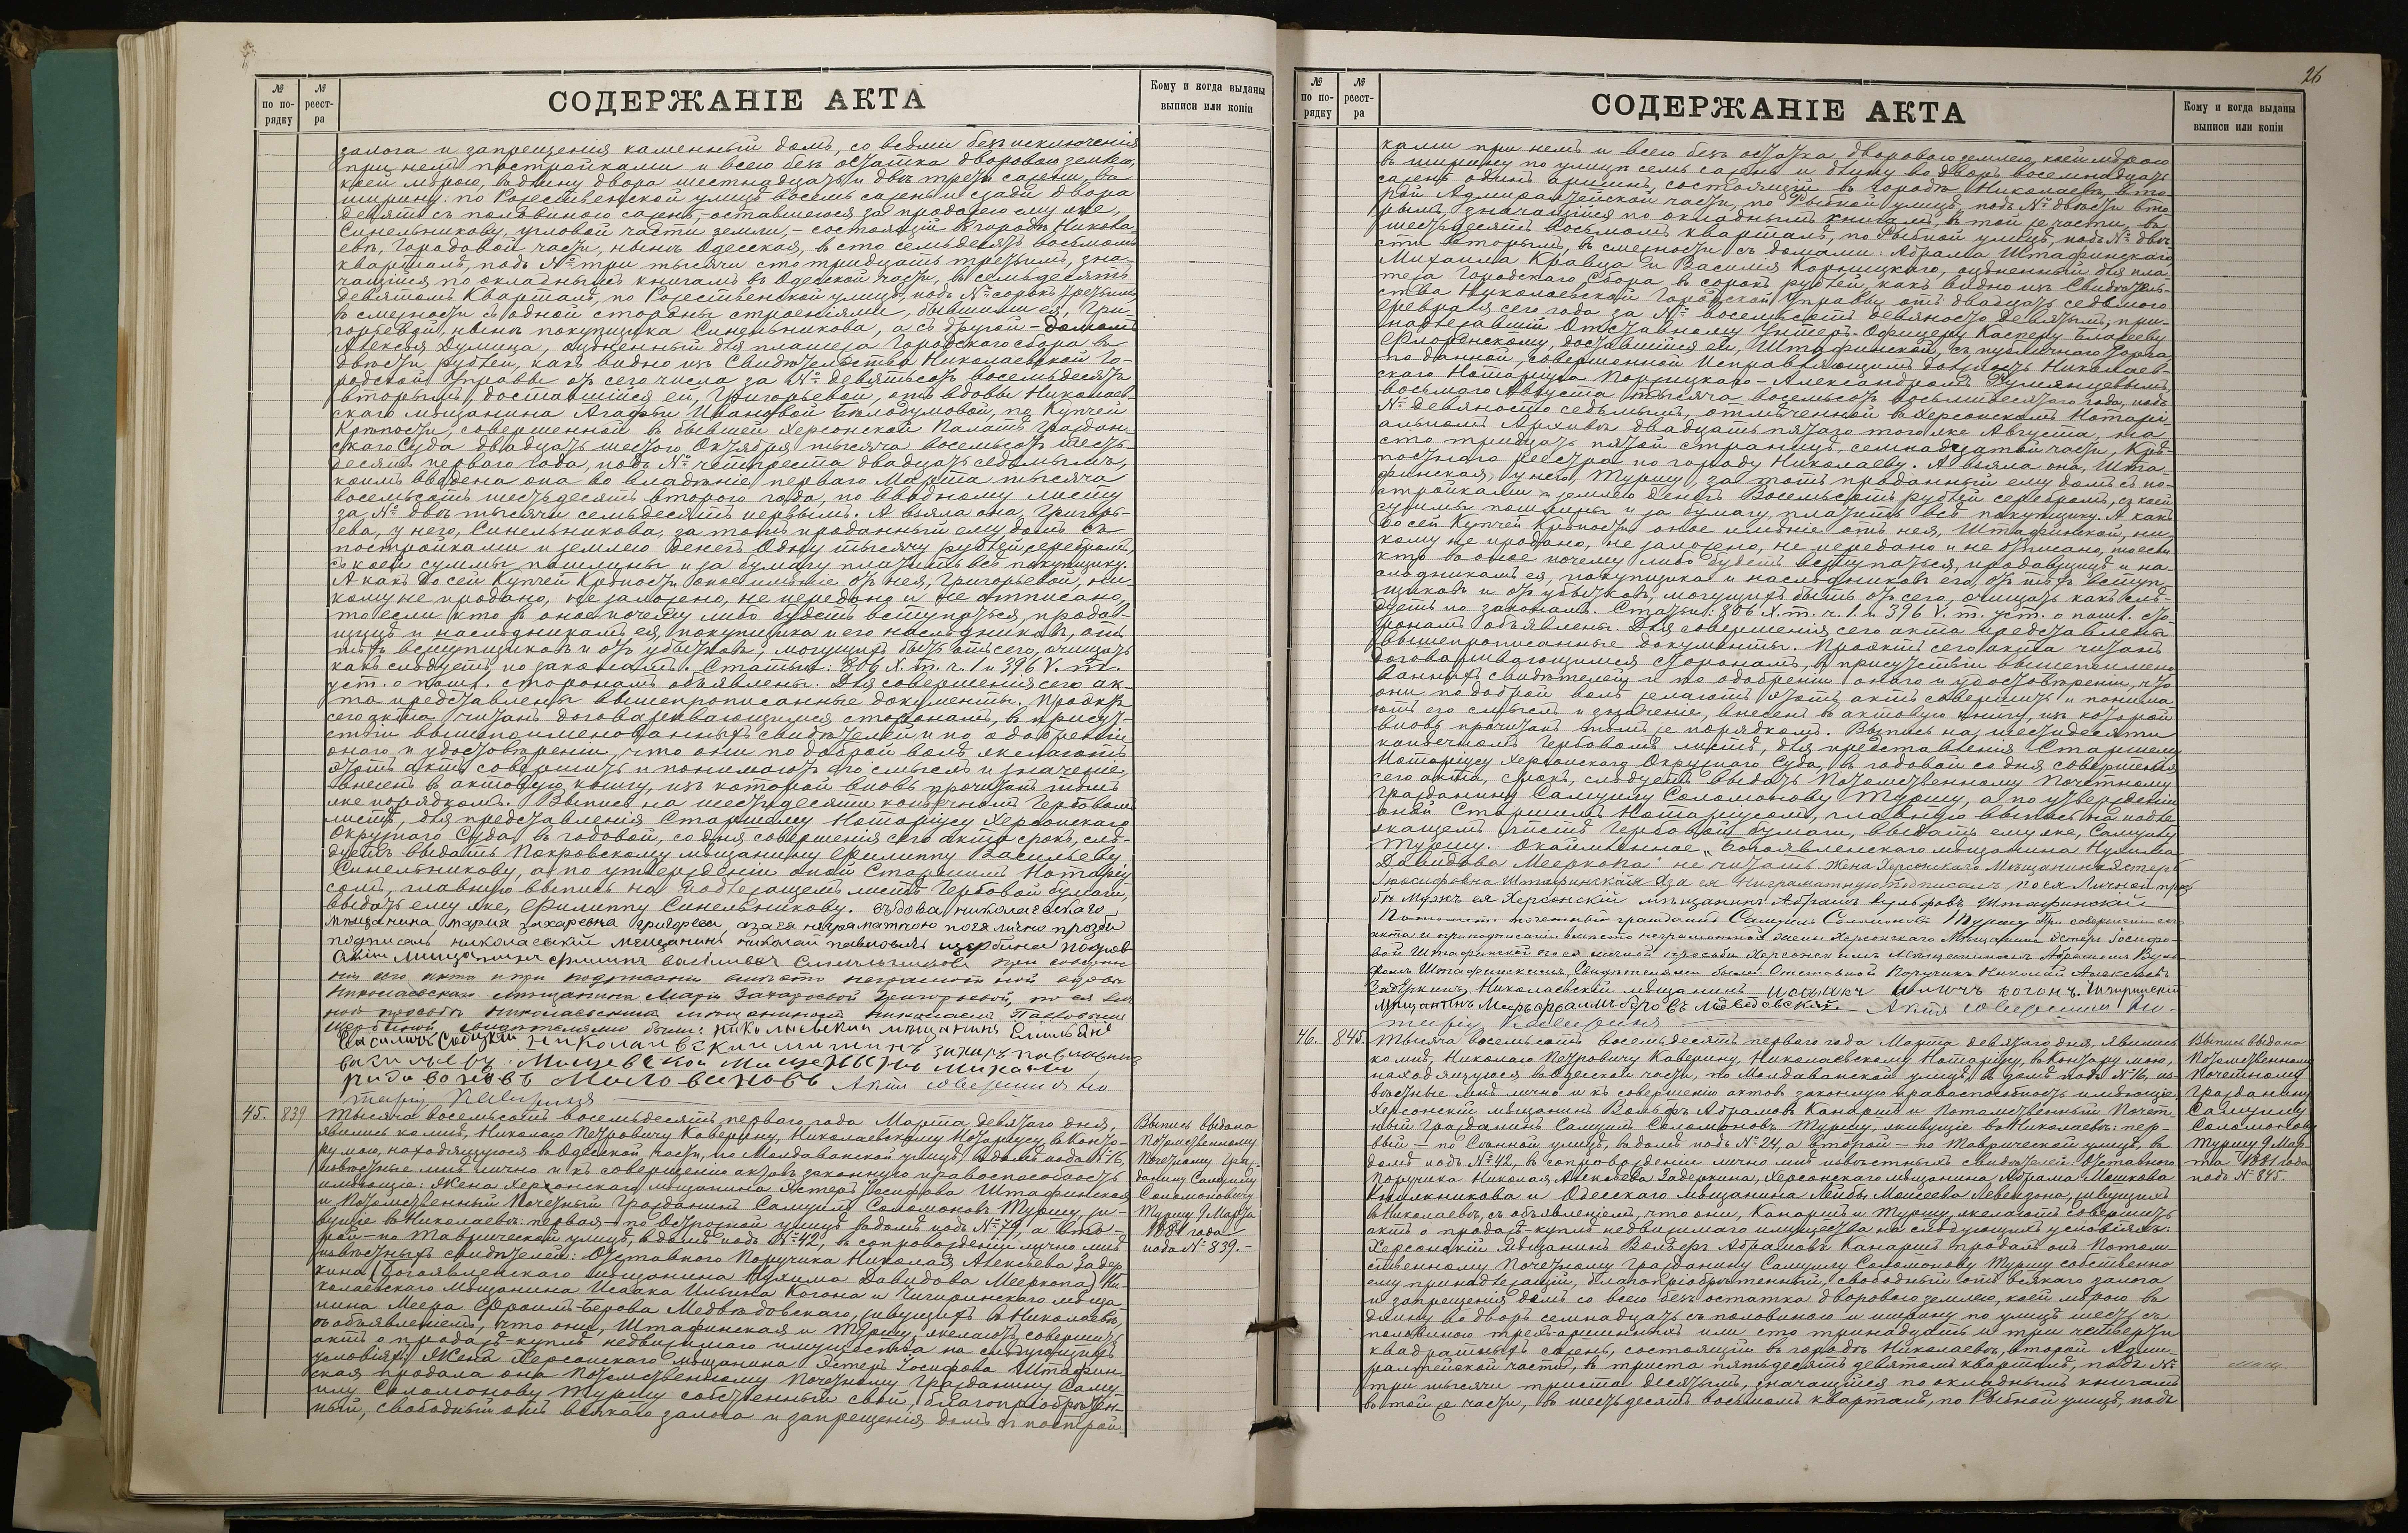 № по порядку
№ реестра
СОДЕРЖАНІЕ АКТА
Кому и когда выданы выписи или копіи
залога и запрещенія каменный домъ, со всѣми безъ исключенія
при немъ постройками и всею безъ остатка дворовою землею,
коей мѣрою, въ длину двора шестнадцать и двѣ трети сажени, въ
ширину: по Рожественской улицѣ восемь сажень и сзади двора
девять съ половиною сажень, оставшеюся за продажею ему же,
Синельникову, угловой части земли, - состоящій въ городѣ Никола-
евѣ, Городовой части, нынѣ Одесская, въ сто семьдесятъ восьмомъ
кварталѣ, подъ № три тысячи сто тридцать третьимъ, зна-
чащійся по окладнымъ книгамъ въ Одесской части, въ семьдесятъ
девятомъ кварталѣ, по Рожественской улицѣ, подъ № сорокъ третьимъ,
въ смежности съ одной стороны строеніями, бывшими ея, Гри-
горьевой, нынѣ покупщика Синельникова, а съ другой - домомъ
Алексѣя Думица, оцѣненный для платежа Городского сбора въ
двѣсти рублей, какъ видно изъ Свидѣтельства Николаевской Го-
родской Управы отъ сего числа за № девятьсотъ восемьдесятъ
вторымъ, доставшійся ей, Григорьевой, отъ вдовы Николаев-
скаго мѣщанина Агафьи Ивановой Бѣлодумовой, по Купчей
Крѣпости, совершенной въ бывшей Херсонской Палатѣ Граждан-
скаго Суда двадцать шестого Октября тысяча восемьсотъ шесть-
десятъ перваго года, подъ № четыреста двадцать седьмымъ,
коимъ введена она во владѣніе перваго Марта тысяча
восемьсотъ шестьдесятъ второго года, по вводному листу
за № двѣ тысячи семьдесятъ первымъ. А взяла она, Григорь-
ева, у него, Синельникова, за тотъ проданный ему домъ съ
постройками и землею денегъ Одну тысячу рублей серебромъ,
съ коей суммы пошлины и за бумагу платитъ всѣ покупщику.
А какъ до сей Купчей Крѣпости оное имѣніе отъ нея, Григорьевой, ни-
кому не продано, не заложено, не передано и не отписано,
то если кто въ оное почему либо будетъ вступаться, продав-
щицѣ и наслѣдникамъ ея, покупщика и его наслѣдниковъ, отъ
тѣхъ вступщиковъ и отъ убытковъ, могущихъ быть отъ сего, очищать
какъ слѣдуетъ по законамъ. Статьи: 806 X. т. ч. 1 и 396 V. т.
уст. о пошл. сторонамъ объявлены. Для совершенія сего ак-
та представлены вышепрописанные документы. Проэктъ
сего акта читанъ договаривающимся сторонамъ, въ присут-
ствіи вышепоименованныхъ свидѣтелей и по одобреніи
онаго и удостовѣреніи, что они по доброй волѣ желаютъ
этотъ актъ совершить и понимаютъ его смыслъ и значеніе,
внесенъ въ актовую книгу, изъ которой вновь прочитанъ тѣмъ
же порядкомъ. Выпись на шестидесяти копѣечномъ Гербовомъ
листѣ, для представленія Старшему Нотаріусу Херсонскаго
Окружнаго Суда, въ годовой, со дня совершенія сего акта срокъ, слѣ-
дуетъ выдать Покровскому мѣщанину Филиппу Васильеву
Синельникову, а по утвержденіи оной Старшимъ Нотаріу-
сомъ, главную выпись на подлежащемъ листѣ Гербовой бумаги,
выдать ему же, Филиппу Синельникову. Вдова николаевскаго
мѣщанина Мария захаровна григорьева азаея неграматною поея лично прозби
подписалъ николаевский мещанинъ николай павловичъ щербина Покров
ский мищанинъ филипъ васильевъ Синельниковъ при соверше
ніи сего акта и при подписаніи вмѣсто неграмотной вдовы
Николаевскаго мѣщанина Маріи Захаровой Григорьевой, по ея лич
ной просьбѣ Николаевскимъ мѣщаниномъ Николаемъ Павловымъ
Щербиной свидѣтелями были: николаевский мещанинъ
Актъ совершилъ Но-
таріусъ Каверинъ
45. 839 Тысяча восемьсотъ восемьдесятъ перваго года Марта девятаго дня,
явились ко мнѣ, Николаю Петровичу Каверину, Николаевскому Нотаріусу, въ Конто-
ру мою, находящуюся въ Одесской части, по Молдаванской улицѣ, въ домѣ подъ № 16,
извѣстные мнѣ лично и къ совершенію актовъ законную правоспособность
имѣющіе: Жена Херсонскаго мѣщанина Эстеръ Іосифова Штафинская
и Потомственный Почетный Гражданинъ Самуилъ Соломоновъ Туршу, жи-
вущіе въ Николаевѣ: первая - по Острожной улицѣ въ домѣ подъ № 79, а вто-
рой - по Таврической улицѣ, въ домѣ подъ № 42, въ сопровожденіи лично мнѣ
извѣстныхъ свидѣтелей: Отставного Поручика Николая Алексѣева Задер-
кина (Богоявленскаго мѣщанина Нухима Давидова Мееркопа) Ни-
колаевскаго мѣщанина Исаака Ильина Когона и Чигиринскаго мѣща-
нина Меера Фроимъ-Берова Медвѣдовскаго, живущихъ въ Николаевѣ,
съ объявленіемъ, что они, Штафинская и Туршу, желаютъ совершить
актъ о продажѣ-куплѣ недвижимаго имущества на слѣдующихъ
условіяхъ: Жена Херсонскаго мѣщанина Эстеръ Іосифова Штафин-
ская продала она Потомственному Почетному Гражданину Саму-
илу Соломонову Туршу собственный свой, благопріобрѣтен-
ный, свободный отъ всякаго залога и запрещенія домъ съ построй-
Выпись выдана
Потомственному
Почетному Гра-
жданину Самуилу
Соломоновичу
Туршу 9 Марта
1881 года
подъ № 839.-
26
№ по порядку
№ реестра
СОДЕРЖАНІЕ АКТА
Кому и когда выданы выписи или копіи
ками при немъ и всею безъ остатка дворовою землею, коей мѣрою
въ ширину по улицѣ семь сажень и длину во дворъ восемнадцать
сажень одинъ аршинъ, состоящій въ городѣ Николаевѣ, вто-
рой Адмиралтейской части, по Рыбной улицѣ, подъ № двѣсти вто-
рымъ, значащійся по окладнымъ книгамъ, въ той же части, въ
шестьдесятъ восьмомъ кварталѣ, по Рыбной улицѣ, подъ № двѣ-
сти вторымъ, въ смежности съ домами: Абрама Штафинскаго,
Михаила Кравца и Василія Корницкаго, оцѣненный для пла-
тежа Городского Сбора, въ сорокъ рублей, какъ видно изъ Свидѣтель-
ства Николаевской Городской Управы отъ двадцать седьмого
Февраля сего года за № восемьсотъ девяносто девятымъ, при-
надлежавшій Отставному Унтеръ-Офицеру Касперу Блажееву
Флоренскому, доставшійся ей, Штафинской, съ публичнаго торга
по данной, совершенной Исправляющимъ должность Николаев-
скаго Нотаріуса Порицкаго - Александромъ Румянцевымъ,
восьмого Августа тысяча восемьсотъ восьмидесятаго года, подъ
№ девяносто седьмымъ, отмѣченной въ Херсонскомъ Нотарі-
альномъ Архивѣ двадцать пятаго того же Августа, на
сто тридцать пятой страницѣ, семнадцатой части, Крѣ-
постнаго реестра по городу Николаеву. А взяла она, Шта-
финская, у него, Туршу, за тотъ проданный ему домъ съ по-
стройками и землею денегъ Восемьсотъ рублей серебромъ, съ коей
суммы пошлины и за бумагу платить всѣ покупщику. А какъ
до сей Купчей Крѣпости оное имѣніе отъ нея, Штафинской, ни-
кому не продано, не заложено, не передано и не отписано, то если
кто въ оное почему либо будетъ вступаться, продавщицѣ и на-
слѣдникамъ ея, покупщика и наслѣдниковъ его, отъ тѣхъ вступ-
щиковъ и отъ убытковъ, могущихъ быть отъ сего, очищать какъ слѣ-
дуетъ по законамъ. Статьи: 806 X. т. ч. 1. и 396 V. т. уст. о пошл. сто-
ронамъ объявлены. Для совершенія сего акта представлены
вышепрописанные документы. Проэктъ сего акта читанъ
договаривающимся сторонамъ, въ присутствіи вышепоимено-
ванныхъ свидѣтелей и по одобреніи онаго и удостовѣреніи, что
они по доброй волѣ желаютъ этотъ актъ совершить и понима-
ютъ его смыслъ и значеніе, внесенъ въ актовую книгу, изъ которой
вновь прочитанъ тѣмъ же порядкомъ. Выпись на шестидесяти
копѣечномъ Гербовомъ листѣ, для представленія Старшему
Нотаріусу Херсонскаго Окружнаго Суда, въ годовой со дня совершенія
сего акта, срокъ, слѣдуетъ выдать Потомственному Почетному
Гражданину Самуилу Соломонову Туршу, а по утвержденіи
оной Старшимъ Нотаріусомъ, главную выпись на подле-
жащемъ листѣ Гербовой бумаги, выдать ему же, Самуилу
Туршу. Окаймленное „Богоявленскаго мѣщанина Нухима
Давидова Мееркопа" не читать. Жена Херсонскаго Мѣщанина Эстеръ
Іосифовна Штафинская аза ея Награматную подписалъ поея Личной прозь
бѣ Мужъ ея Херсонскій мѣщанинъ Абрамъ Вульфовъ Штафинскій
Потомст. почетный гражданинъ Самуилъ Соломоновъ Туршу При совершеніи сего
акта и при подписаніи вмѣсто неграмотной жены Херсонскаго Мѣщанина Эстеръ Іосифо-
вой Штафинской по ея личной просьбѣ Херсонскимъ Мѣщаниномъ Абрамомъ Вуль-
фомъ Штафинскимъ, Свидѣтелями были: Отставной Поручикъ Николай Алексѣевъ
Задеркинъ, Николаевскій мѣщанинъ Исаакъ Ильичъ Когонъ. Чигиринскій
Мѣщанинъ Мееръ Фраимъ-Беровъ Медведовский. Актъ совершилъ Но-
таріусъ Каверинъ
46. 845. Тысяча восемьсотъ восемьдесятъ перваго года Марта девятаго дня, явились
ко мнѣ, Николаю Петровичу Каверину, Николаевскому Нотаріусу, въ Контору мою,
находящуюся въ Одесской части, по Молдаванской улицѣ, въ домѣ подъ № 16, из-
вѣстные мнѣ лично и къ совершенію актовъ законную правоспособность имѣющіе:
Херсонскій мѣщанинъ Вольфъ Абрамовъ Канаршъ и Потомственный Почет-
ный Гражданинъ Самуилъ Соломоновъ Туршу, живущіе въ Николаевѣ: пер-
вый - по Сѣнной улицѣ, въ домѣ подъ № 24, а второй - по Таврической улицѣ, въ
домѣ подъ № 42, въ сопровожденіи лично мнѣ извѣстныхъ свидѣтелей: Отставного
Поручика Николая Алексѣева Задеркина, Херсонскаго мѣщанина Абрама Мошкова
и Одесскаго Мѣщанина Лейбы Моисеева Левензона, живущихъ
въ Николаевѣ, съ объявленіемъ, что они, Канаршъ и Туршу, желаютъ совершить
актъ о продажѣ-куплѣ недвижимаго имущества на слѣдующихъ условіяхъ:
Херсонскій мѣщанинъ Вольфъ Абрамовъ Канаршъ продалъ онъ Потом-
ственному Почетному Гражданину Самуилу Соломонову Туршу собственно
ему принадлежащій, благопріобрѣтенный, свободный отъ всякаго залога
и запрещенія домъ со всею безъ остатка дворовою землею, коей мѣрою въ
длину во дворъ семнадцать съ половиною и ширину по улицѣ шесть съ
половиною трехъ-аршинныхъ или сто тринадцать и три четверти
квадратныхъ сажень, состоящій въ городѣ Николаевѣ, второй Адми-
ралтейской части, въ триста пятьдесятъ девятомъ кварталѣ, подъ №
три тысячи триста десятымъ, значащійся по окладнымъ книгамъ
въ той же части, въ шестьдесятъ восьмомъ кварталѣ, по Рыбной улицѣ, подъ
Выпись выдана
Потомственному
Почетному
Гражданину
Самуилу
Соломонову
Туршу 9 Мар-
та 1881 года
подъ № 845.